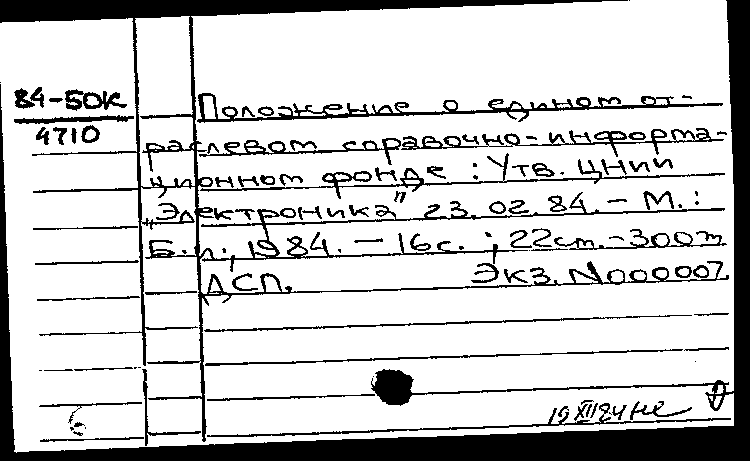 84-5ОК
4710
Положение о едином от-
раслевом справочно-информа-
ционном фонде : Утв. ЦНИИ
„Электроника" 23.02.84. - М. :
Б.и., 1984. - 16с. ; 22см. - 300
ДСП. Экз. N000007.
19 XII 84